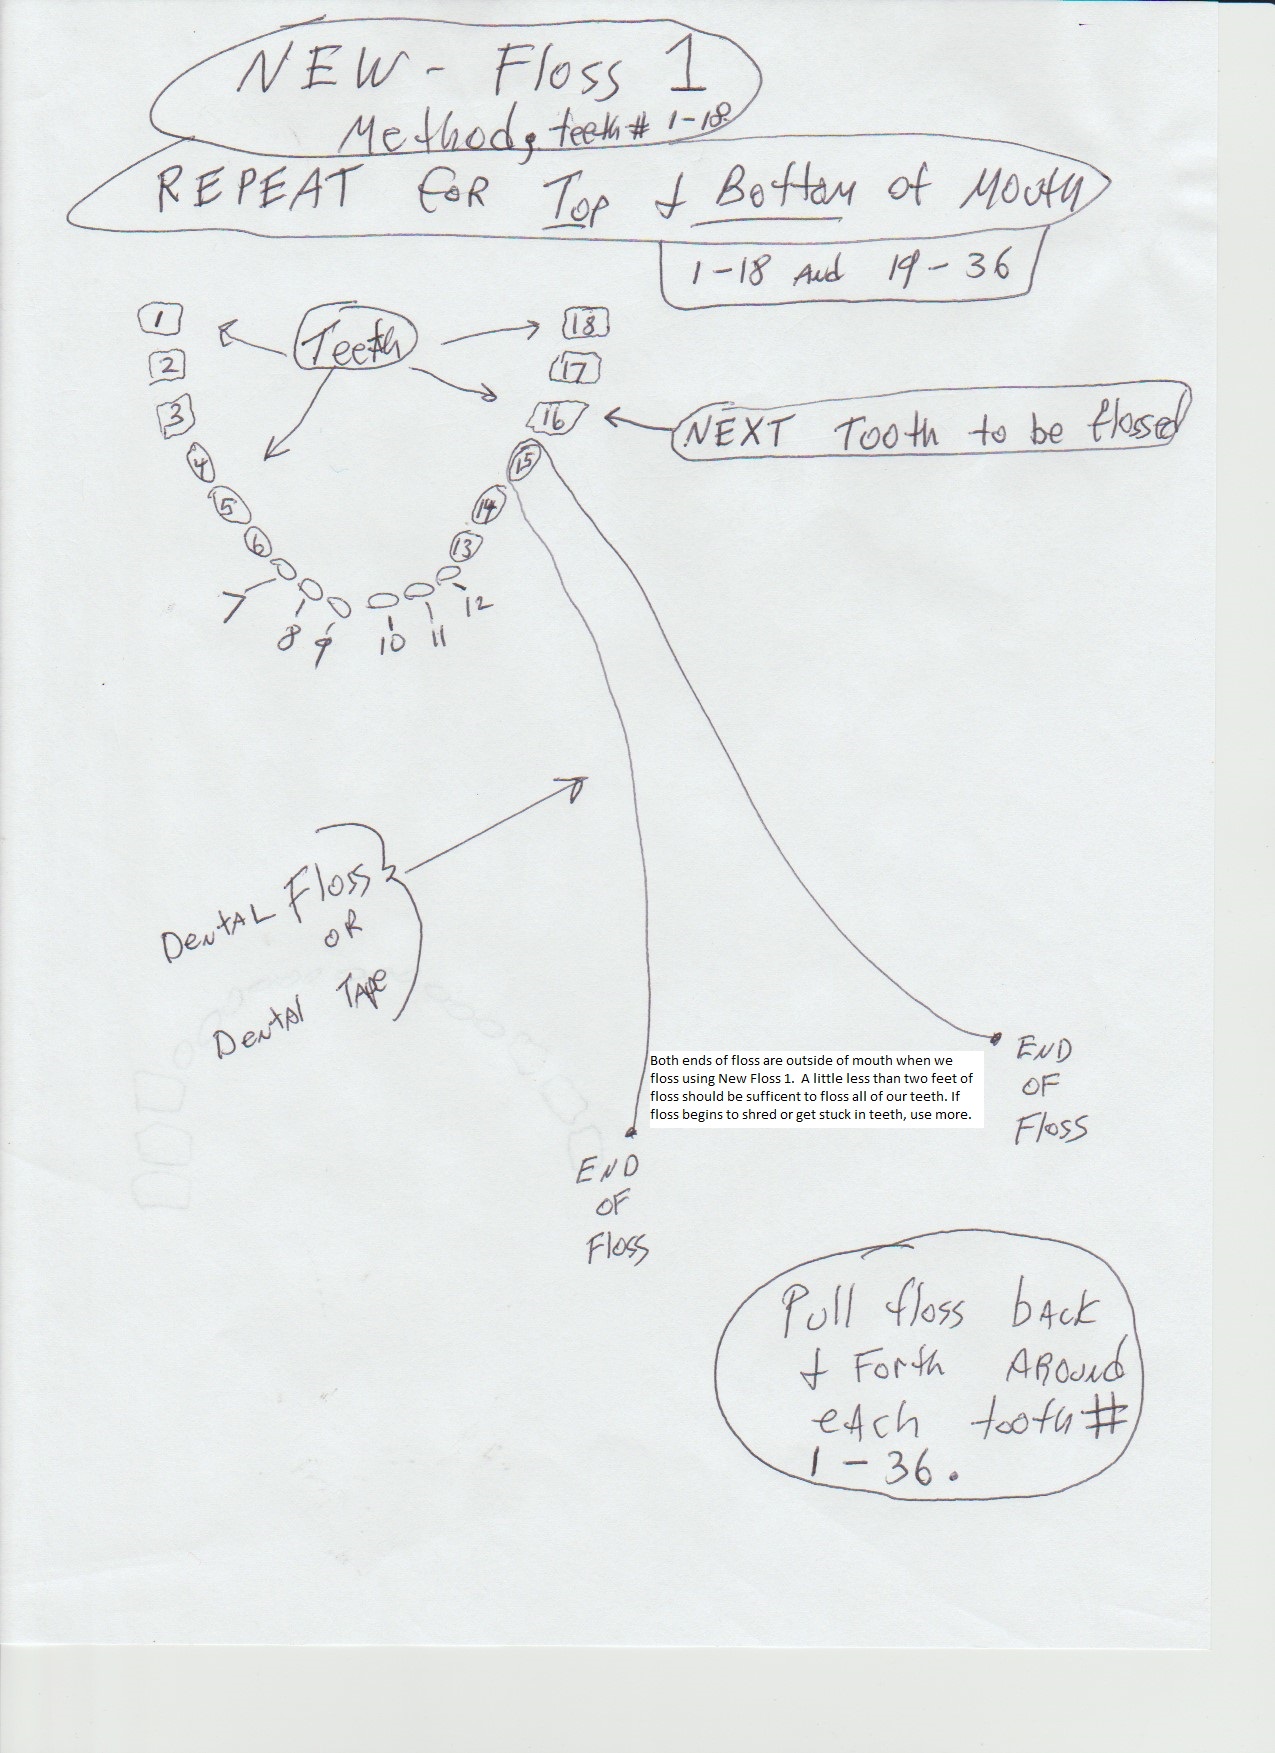 NEW - Floss 1
Method; teeth # 1-18
REPEAT FOR Top & Bottom of Mouth
1-18 And 19-36
1
Teeth
18
2
17
3
16
NEXT Tooth to be flossed
4
15
5
14
6
13
7
12
8
9
10
11
Dental Floss
OR
Dental Tape
Both ends of floss are outside of mouth when we
floss using New Floss 1.  A little less than two feet of
floss should be sufficent to floss all of our teeth. If
floss begins to shred or get stuck in teeth, use more.
END
OF
Floss
END
OF
Floss
Pull floss back
& Forth Around
each tooth #
1-36.